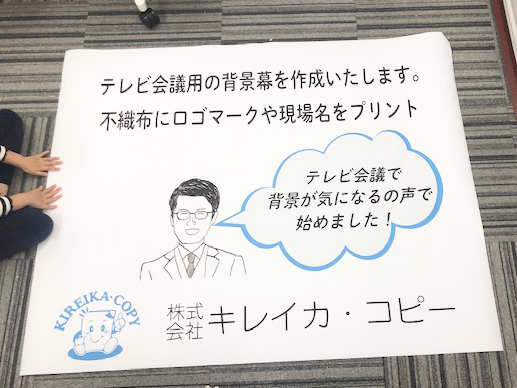 テレビ会議用の背景幕を作成いたします。
不織布にロゴマークや現場名をプリント
テレビ会議で
背景が気になるの声で
始めました！
KIREIKA・COPY
株式会社 キレイカ・コピー